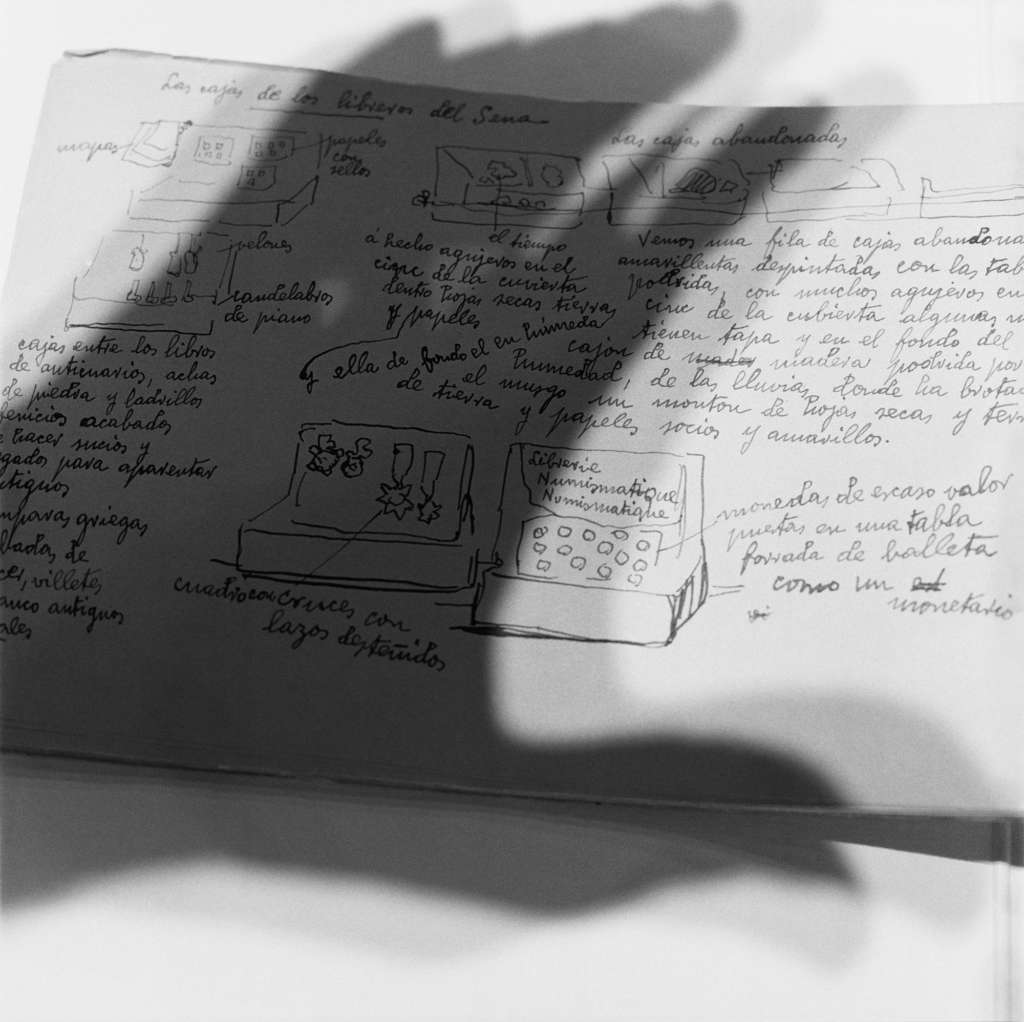 Las cajas de los libreros del Sena
mapas
papeles
con
sellos
velones
candelabros
de piano
cajas entre los libros
de anticuarios, achas
de piedra y ladrillos
acabados
hacer sucios y
gados para aparentar
tiguos
mparas griegas
badas de
villetes
anco antiguos
Las cajas abandonadas
el tiempo
á hecho agujeros en el
cinc de la cuvierta
dentro hojas secas tierra
y papeles
y ella de fondo el en húmeda
Vemos una fila de cajas abandona
amarillentas despintadas con las tab
podridas, con muchos agujeros en
cinc de la cubierta algunas n
tienen tapa y en el fondo del
cajon de madera podrida por
humedad, de las lluvias, donde ha brota
el musgo un monton de hojas secas y
de tierra y papeles socios y amarillos.
cuadro con cruces con
lazos desteñidos
Librerie
Numismatique
Numismatique
monedas de escaso valor
puestas en una tabla
forrada de balleta
como un
monetario